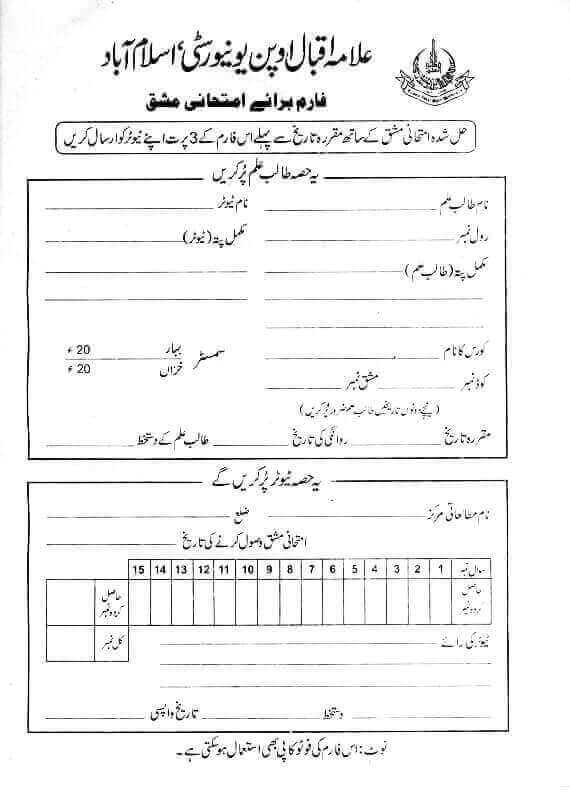 علامہ اقبال اوپن یونیورسٹی، اسلام آباد
فارم برائے امتحانی مشق
حل شدہ امتحانی مشق کے ساتھ مقررہ تاریخ سے پہلے اس فارم کے 3 پرت اپنے ٹیوٹر کو ارسال کریں
یہ حصہ طالب علم پُر کریں
نام طالب علم نام ٹیوٹر
رول نمبر مکمل پتہ (ٹیوٹر)
مکمل پتہ (طالب علم)
کورس کا نام سمسٹر بہار 20ء
خزاں 20ء
کوڈ نمبر مشق نمبر
(نیچے دونوں تاریخیں طالب علم ضرور پُر کریں)
مقررہ تاریخ روانگی کی تاریخ طالب علم کے دستخط
یہ حصہ ٹیوٹر پُر کریں گے
نام مطالعاتی مرکز ضلع
امتحانی مشق وصول کرنے کی تاریخ
سوال نمبر 1 2 3 4 5 6 7 8 9 10 11 12 13 14 15
حاصل کردہ نمبر حاصل کردہ نمبر
ٹیوٹر کی رائے کل نمبر
دستخط تاریخ واپسی
نوٹ: اس فارم کی فوٹو کاپی بھی استعمال ہوسکتی ہے۔